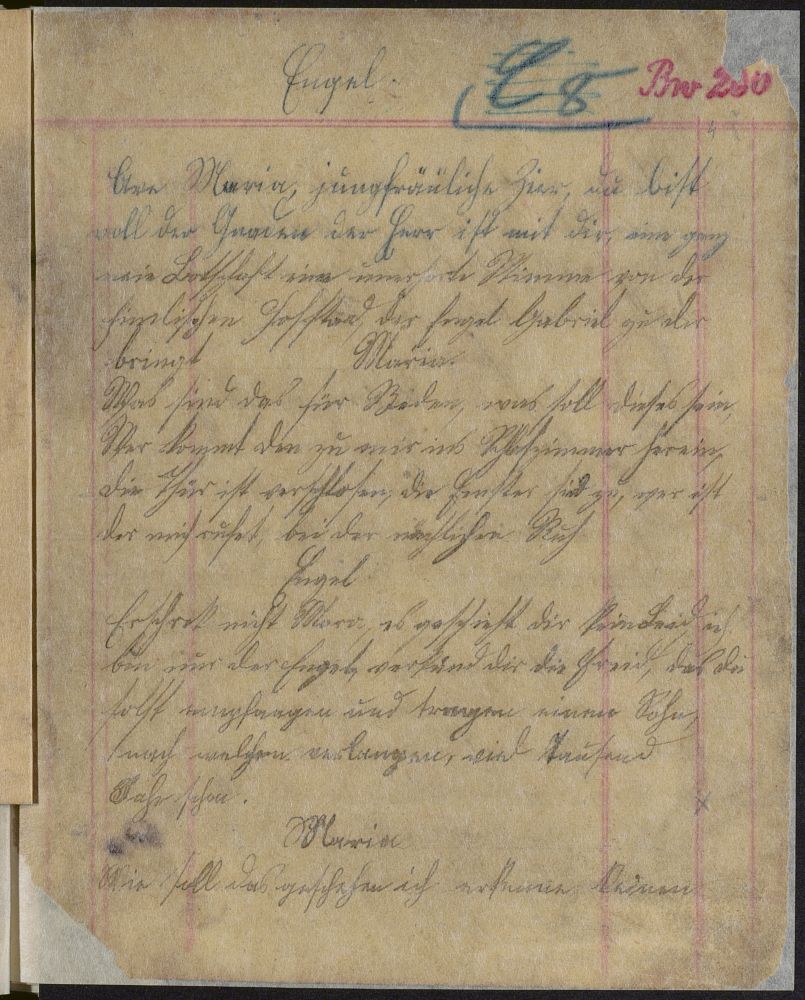 Engel.
E 8
Bw 280
Ave Maria, jungfräuliche Zier, du bist
voll der Gnaden der Herr ist mit dir, eine ganz
neie Botschaft eine unerhörte Stimme von der
himlischen Hofstaad, der Engel Gabriel zu dir
bringt Maria.
Was sind das für Reden, was soll dieses sein,
Wer kommt den zu mir ins Schlafzimmer herein,
die Thür ist verschlosen, die Fenster sind zu, wer ist
der mich rufet, bei der nächlichen Ruh
Engel
Erschrek nicht Mara, es geschieht dir kein Leid ich
bin nur der Engel, verkünd dir die Freid, das du
solst empfangen und tragen einen Sohn,
nach welchen verlangen, viel Tausend
Jahr schon.
Maria
Wie soll das geschehen ich erkenne keinen